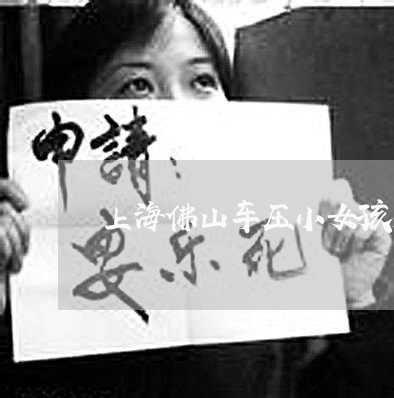 申請：
上海佛山车压小女孩
安乐死